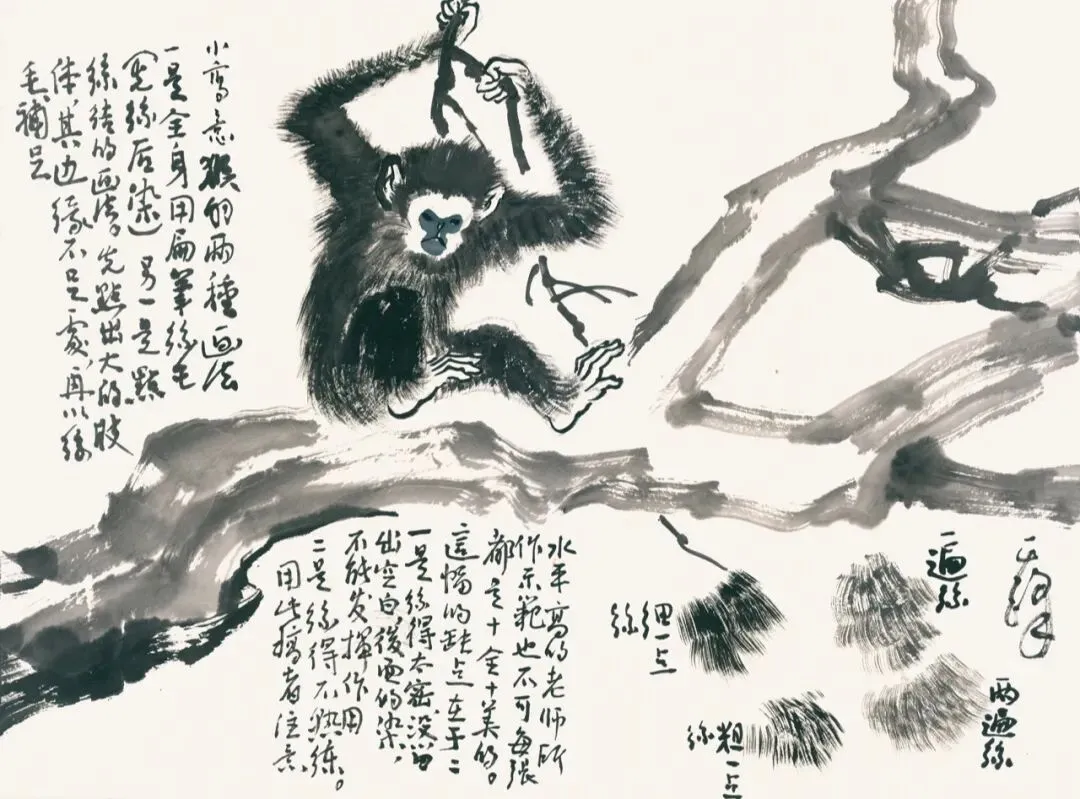 小寫意猴的兩種画法
一是全身用扁筆絲毛
(先絲后染)另一是點
絲结的画法。先點出大的肢
体其边缘不足處,再以絲
毛補足
水平高的老师所
作示範也不可每張
都是十全十美的。
這幅的缺点在于二
一是絲得太密没留
出空白,後面的染,
不能发揮作用
二是絲得不熟練。
用此稿者注意
一遍絲
两遍絲
細一点
絲
粗一点
絲